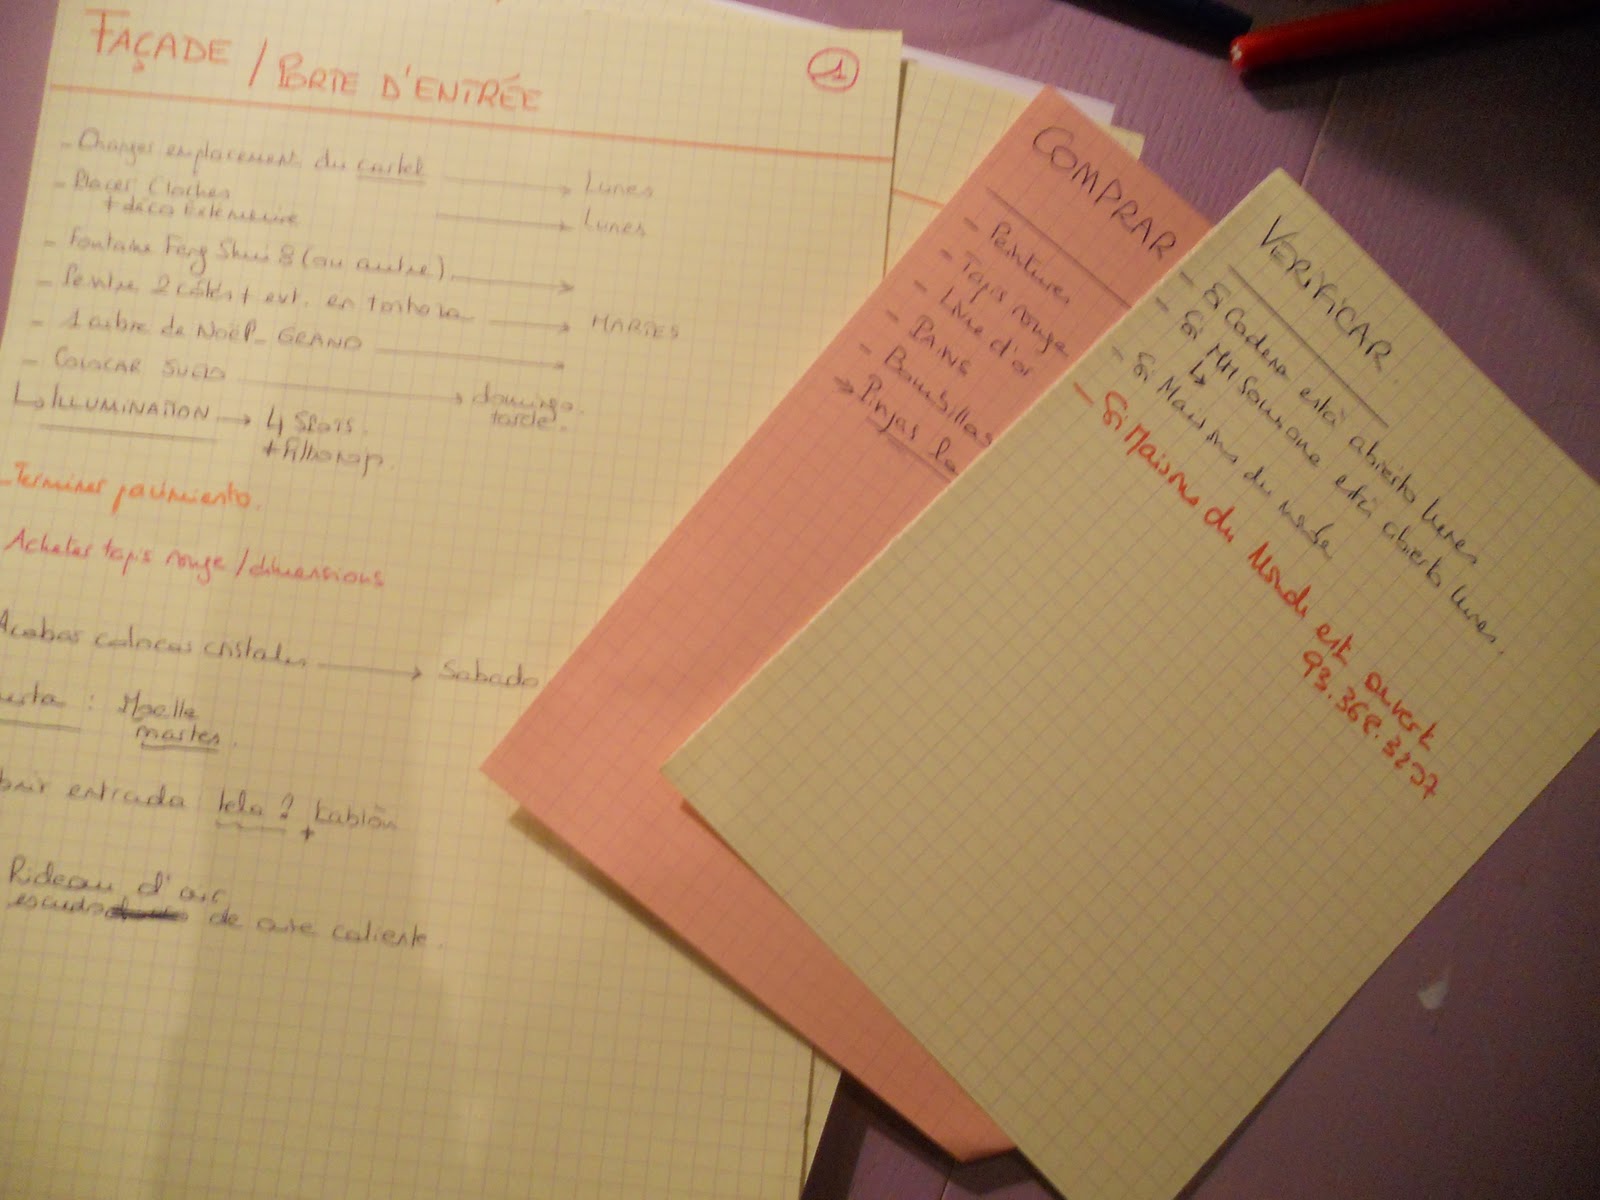 FAÇADE / PORTE D'ENTRÉE
1
- Changer emplacement du cartel → Lunes
- Placer Cloches
+ déco extérieure → Lunes
- Fontaine Feng Shui 8 (ou autre) →
- Peintre 2 côtés + ext. en → MARTES
- 1 arbre de Noël - GRAND
- COLOCAR SUELO → domingo
tarde.
↳ ILLUMINATION → 4 SPOTS.
+
- Terminer pavimiento.
Acheter tapis rouge / dimensions
Acabar colocar cristales → Sabado
: Moelle
martes.
entrada tela ? + tablón
Rideau d'air
de aire caliente.
COMPRAR
- Peintures
- Tapis rouge
- Livre d'or
- PAINS
- Bombillas
→ Pinjas
VERIFICAR
- Si Cadena está abierto lunes
- Si MM está abierto lunes.
↳
- Si Maisons du monde
- Si Maisons du Monde est ouvert
93.368.3207